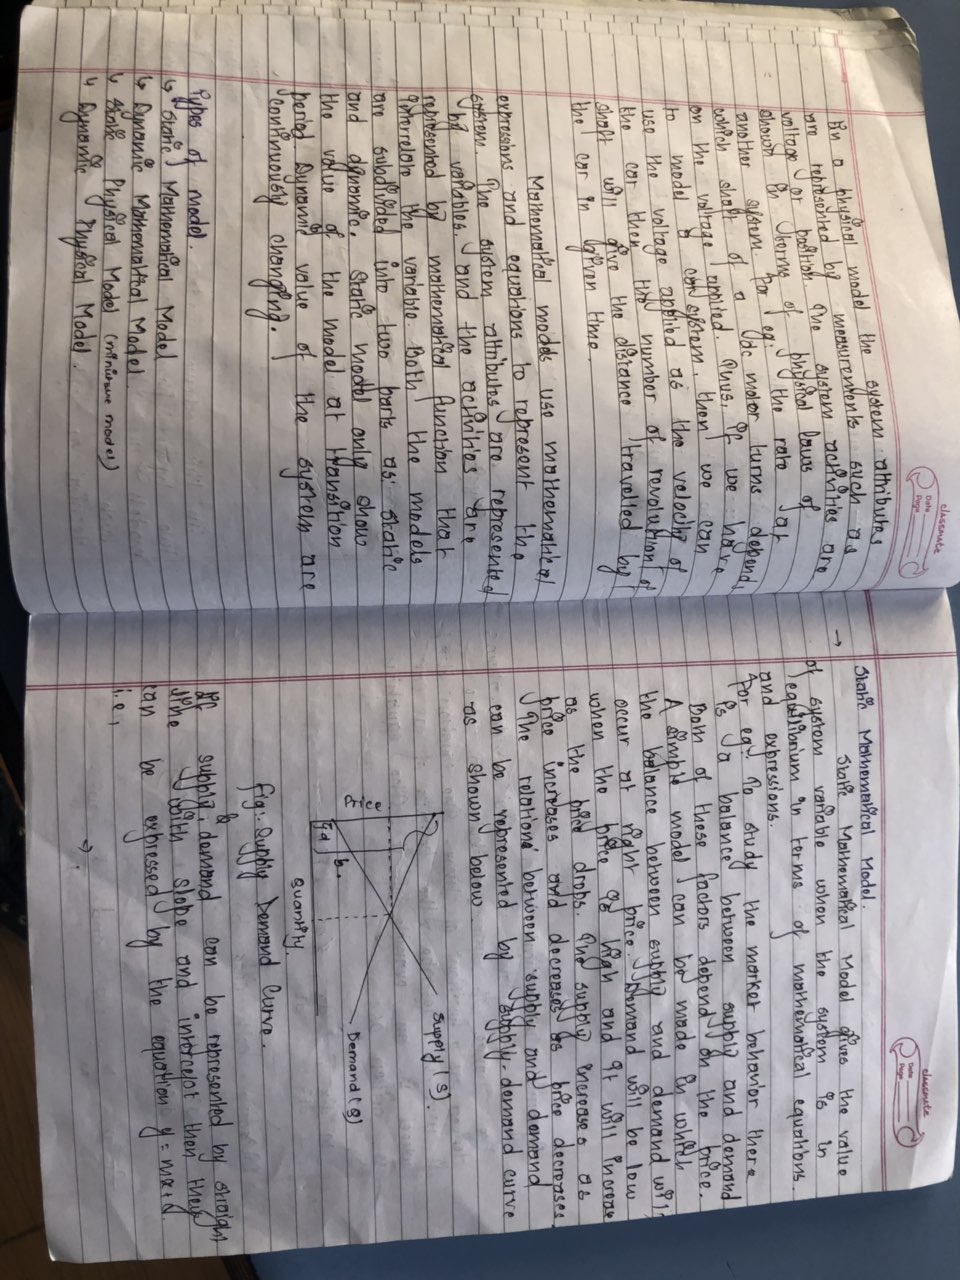 classmate
Date
Page
In a physical model the system attributes
are represented by measurements such as
voltage or position. The system activities are
shown in terms of physical laws of
another system. For eg: the rate at
which shaft of a Vdc motor turns depend
on the voltage applied. Thus, if we have
to model a car system, then we can
use the voltage applied as the velocity of
the car then the number of revolution of
shaft will give the distance travelled by
the car in given time
Mathematical models use mathematical
expressions and equations to represent the
system. The system attributes are represented
by variables. and the activities are
represented by mathematical function that
interrelate the variable. Both the models
are subdivided into two parts as: static
and dynamic. Static model only show
the value of the model at transition
period Dynamic value of the system are
continuously changing.
Types of model.
↳ Static Mathematical Model
↳ Dynamic Mathematical Model.
↳ Static Physical Model (miniature model)
↳ Dynamic Physical Model.
classmate
Date
Page
→ Static Mathematical Model.
Static Mathematical Model gives the value
of system variable when the system is in
equilibrium in terms of mathematical equations.
and expressions.
For eg: To study the market behavior there
is a balance between supply and demand
Both of these factors depend on the price.
A simple model can be made in which
the balance between supply and demand will
occur at right price. Demand will be low
when the price is high and it will increase
as the price drops. The supply increases as
price increases and decreases as price decreases.
The relation between supply and demand
can be represented by supply-demand curve
as shown below
Supply (S).
Demand (g)
Price
a
b.
Quantity.
fig: Supply Demand Curve.
If supply & demand can be represented by straight
line with slope and intercept then they
can be expressed by the equation y = mx + d.
i.e,
→